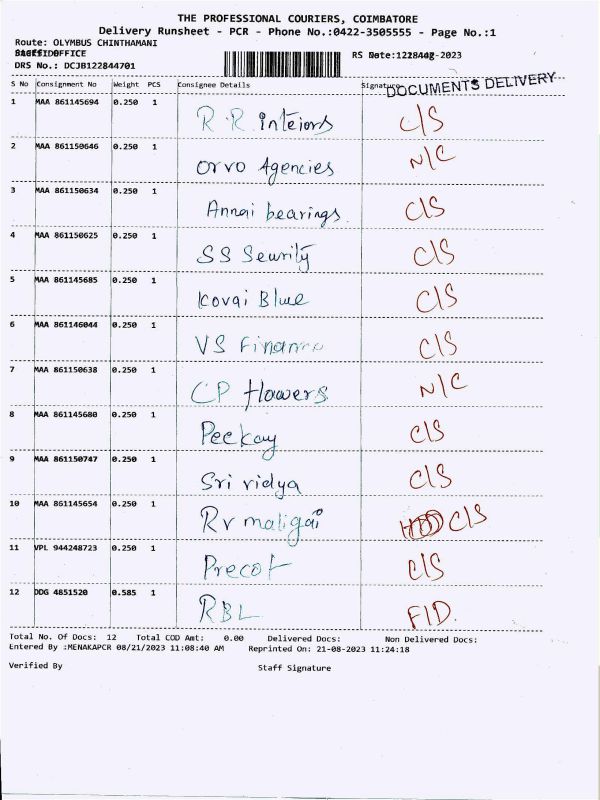 THE PROFESSIONAL COURIERS, COIMBATORE
Delivery Runsheet - PCR - Phone No.:0422-3505555 - Page No.:1
Route: OLYMBUS CHINTHAMANI
DRS No.: DCJB122844701
S No Consignment No Weight PCS Consignee Details Signature
DOCUMENTS DELIVERY
1 MAA 861145694 0.250 1 R.R. Inteiors C/S
2 MAA 861150646 0.250 1 Orvo Agencies N/C
3 MAA 861150634 0.250 1 Annai bearings C/S
4 MAA 861150625 0.250 1 SS Seurity C/S
5 MAA 861145685 0.250 1 Kovai Blue C/S
6 MAA 861146044 0.250 1 VS Finance C/S
7 MAA 861150638 0.250 1 CP flowers N/C
8 MAA 861145680 0.250 1 Peekay C/S
9 MAA 861150747 0.250 1 Sri vidya C/S
10 MAA 861145654 0.250 1 Rv maligai C/S
11 VPL 944248723 0.250 1 Precot C/S
12 DDG 4851520 0.585 1 RBL F/D.
Total No. Of Docs: 12 Total COD Amt: 0.00 Delivered Docs: Non Delivered Docs:
Entered By :MENAKAPCR 08/21/2023 11:08:40 AM Reprinted On: 21-08-2023 11:24:18
Verified By Staff Signature